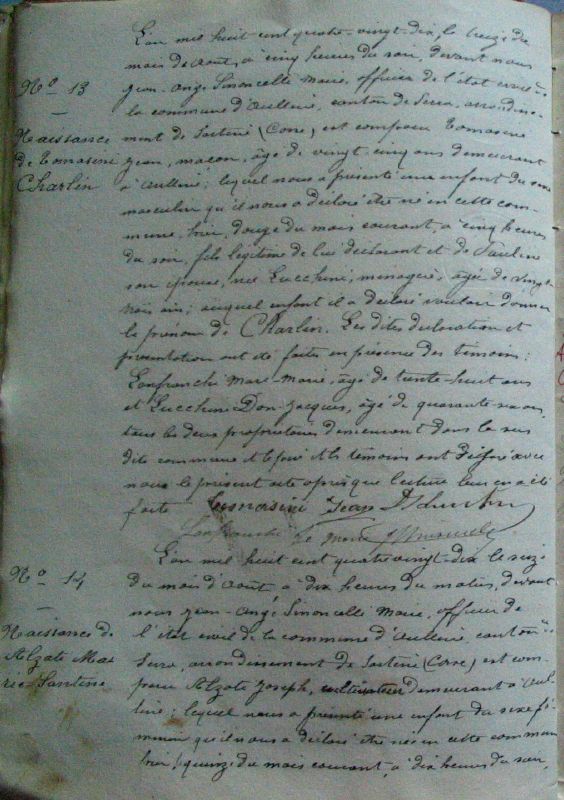 L'an mil huit cent quatre-vingt-dix le treize du
mois de Août, à cinq heures du soir, devant nous
Jean-Ange Simoncelli Maire, officier de l'état civil de
la commune d'Aullène, canton de Serra, arrondisse-
ment de Sartène (Corse) est comparu Tomasini
Jean, maçon, âgé de vingt-cinq ans demeurant
à Aullène; lequel nous a présenté une enfant du sexe
masculin qu'il nous a déclaré être né en cette com-
mune, hier, douze du mois courant, à cinq heures
du soir, fils légitime de lui déclarant et de Pauline
son épouse, née Lucchini, ménagère, âgée de vingt-
trois ans; auquel enfant il a déclaré vouloir donner
le prénom de Charlin. Les dites déclaration et
présentation ont été faites en présence des témoins:
Lanfranchi Marc-Marie, âgé de trente-huit ans
et Lucchini Don-Jacques, âgé de quarante ans
tous les deux propriétaires demeurant dans la sus
dite commune et le père et les témoins ont signé avec
nous le présent acte après que lecture leur en a été
faite Tomasini Jean
Lanfranchi
N° 13
Naissance
de Tomasini
Charlin
L'an mil huit cent quatre vingt-dix le seize
du mois d'Août, à dix heures du matin, devant
nous Jean-Ange Simoncelli Maire, officier de
l'état civil de la commune d'Aullène canton de
Serra, arrondissement de Sartène (Corse) est com-
paru Alzate Joseph, cultivateur demeurant à Aul-
lène; lequel nous a présenté une enfant du sexe fé-
minin qu'il nous a déclaré être né en cette commune
hier, quinze du mois courant, à dix heures du soir,
N° 14
Naissance de
Alzate Ma-
rie-Santine